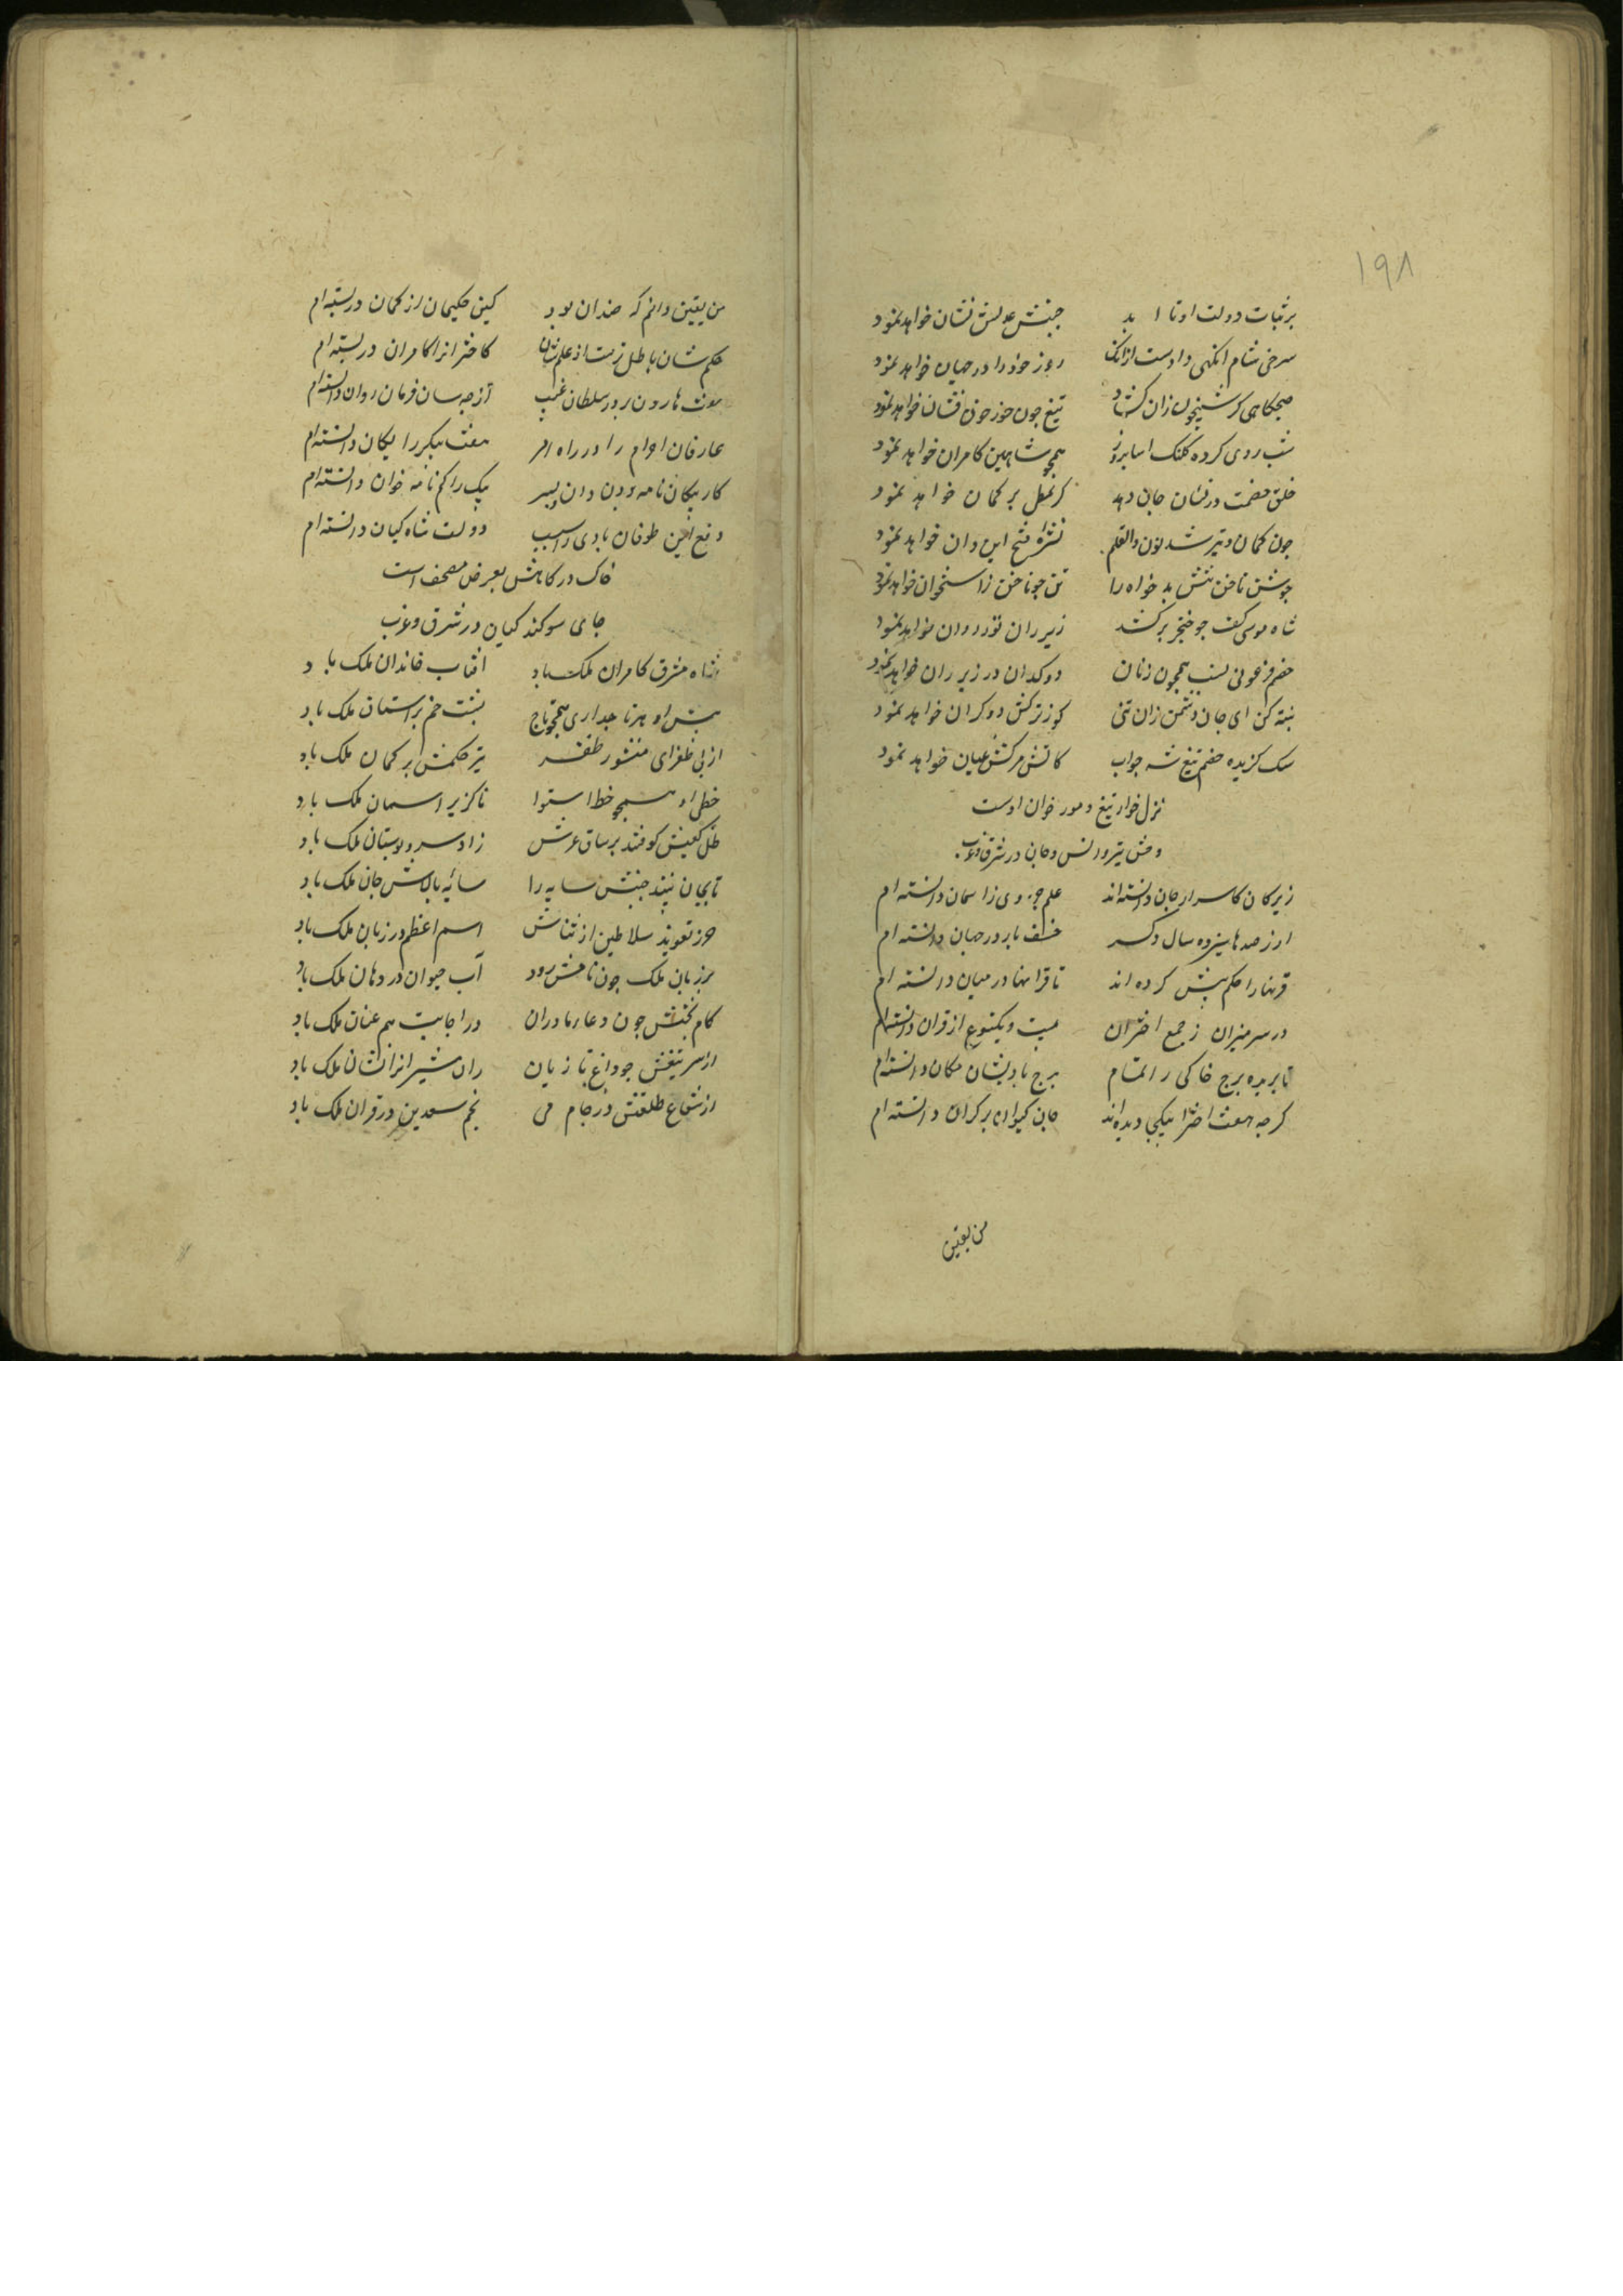 ۱۹۸
بر ثبات دولت او تا ابد جنبش عدلش نشان خواهد نمود
سرخی شام اگهی دادست ازانک روز خود را در جهان خواهد نمود
صبحکاهی کز شبیخون ران کشاد تیغ چون خور خون فشان خواهد نمود
شب روی کرده کلنک اسا بروز همچو شاهین کامران خواهد نمود
خلق خصمت در نشان جان دهد بر کمان خواهد نمود
چون کمان و تیر شد نون والقلم نشرهٔ فتح این و ان خواهد نمود
جوشن ناخن تنش بد خواه را تن چو ناخن ز استخوان خواهد نمود
شاه موسی کف چو خنجر برکشد زیر ران نور روان خواهد نمود
خصم فرعونی نسب همچون زنان دوکدان در زیر ران خواهد نمود
پنبه کن ای جان دشمن زان تنی کو ز ترکش دوکدان خواهد نمود
سک کزیده خصم تیغ شه چو آب کاتش مرکش عیان خواهد نمود
نزل خوار تیغ و مور خوان اوست
وحش و طیر و انس و جان در شرق و غرب
زیرکان کاسرار جان دانسته اند علم جزوی ز اسمان دانسته ام
از رصدها سیزده سال دکر خسف باد در جهان دانسته ام
قرنها را حکم پیش کرده اند تا قرانها در میان دانسته ام
در سر میزان ز جمع اختران بیست و یکنوع از قران دانسته ام
تا بریده برج خاکی را تمام برج بادیشان مکان دانسته ام
کرچه هفت اختر بیکجا دیده اند جای کیوان بر کران دانسته ام
من یقین
من یقین دانم که ضد ان بود کین حکیمان از کمان دانسته ام
حکمشان باطل ترست از علمشان کاختران را کامران دانسته ام
هارون بر در سلطان غیب از چه سان فرمان روان دانسته ام
عارفان اجرام را در راه امر هفت پیکر را یکان دانسته ام
کار پیکان نامه بردن دان و بس پیک را کم نامه خوان دانسته ام
دفع این طوفان بادی را سبب دولت شاه کیان دانسته ام
خاک درکاهش بعرض مصحف است
جای سوکند کیان در شرق و غرب
شاه مشرق کامران ملک باد افتاب خاندان ملک باد
پیش او هر تاجداری همچو تاج پشت خم بر استان ملک باد
از پی طغرای منشور ظفر تیر حکمش بر کمان ملک باد
خطی او همچو خط استوا ناکزیر اسمان ملک باد
ظل کعبش کو فتد بر ساق عرش زاد سرو بوستان ملک باد
تا بجان بیند جنبش سایه را سایه بالاش جان ملک باد
حرز تعویذ سلاطین از ثناش اسم اعظم در زبان ملک باد
بر زبان ملک چون نامش رود آب حیوان در دهان ملک باد
کام بخشش چون دعا مادران در اجابت هم عنان ملک باد
از سر تیغش چو داغ تازیان ران شیران را نشان ملک باد
از شعاع طلعتش در جام می نجم سعدین در قران ملک باد